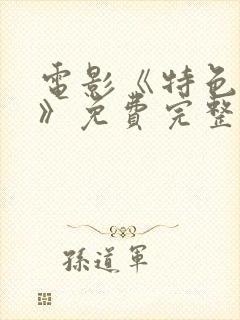 電影《特色
》免費完整
孫道軍